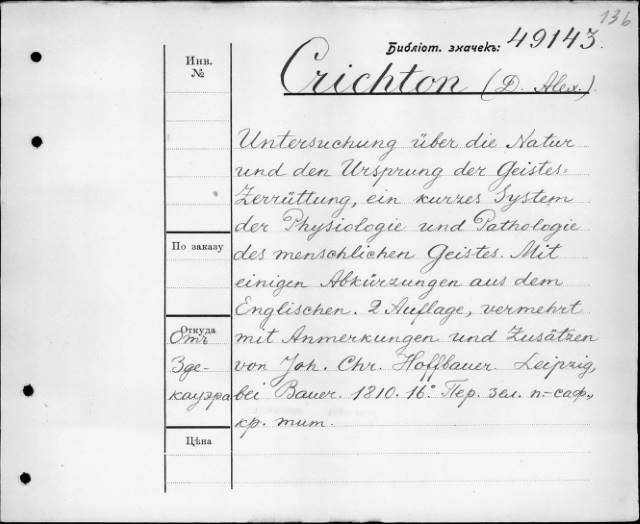 136
Библіот. значекъ: 49143.
Инв.
№
Crichton (D. Alex.).
Untersuchung über die Natur
und den Ursprung der Geistes=
Zerrüttung, ein kurzes System
der Physiologie und Pathologie
По заказу
des menschlichen Geistes. Mit
einigen Abkürzungen aus dem
Englischen. 2 Auflage, vermehrt
Откуда
Отъ
mit Anmerkungen und Zusätzen
Зде-
von Joh. Chr. Hoffbauer. Leipzig,
кауэра
bei Bauer. 1810. 16°. Пер. зел. п.-саф.,
кр. тит.
Цѣна